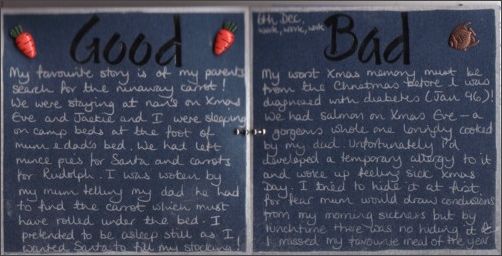 Good
My favourite story is of my parents
search for the runaway carrot!
We were staying at nan's on Xmas
Eve and Jackie and I were sleeping
on camp beds at the foot of
mum & dad's bed. We had left
mince pies for Santa and carrots
for Rudolph. I was woken by
my mum telling my dad he had
to find the carrot which must
have rolled under the bed. I
pretended to be asleep still as I
wanted Santa to fill my stocking!
6th Dec.
work, work, work
Bad
My worst Xmas memory must be
from the Christmas before I was
diagnosed with diabetes (Jan 96)!
We had salmon on Xmas Eve - a
gorgeous whole one lovingly cooked
by my dad. Unfortunately I'd
developed a temporary allergy to it
and woke up feeling sick Xmas
Day. I tried to hide it at first
for fear mum would draw conclusions
from my morning sickness but by
lunchtime there was no hiding it &
I missed my favourite meal of the year